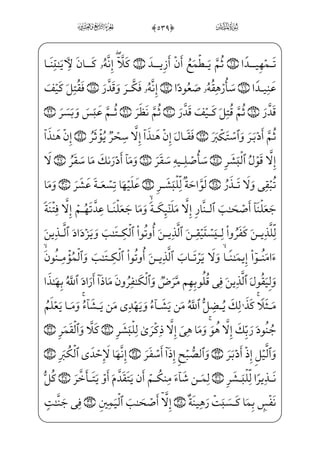 سُورَةُ المُدَّثِّرِ ﴿٥٣٩﴾ الجُزْءُ التَّاسِعُ وَالعِشْرُونَ
تَمْهِيدًا ١٤ ثُمَّ يَطْمَعُ أَنْ أَزِيدَ ١٥ كَلَّا ۖ إِنَّهُۥ كَانَ لِـَٔايَـٰتِنَا
عَنِيدًا ١٦ سَأُرْهِقُهُۥ صَعُودًا ١٧ إِنَّهُۥ فَكَّرَ وَقَدَّرَ ١٨ فَقُتِلَ كَيْفَ
قَدَّرَ ١٩ ثُمَّ قُتِلَ كَيْفَ قَدَّرَ ٢٠ ثُمَّ نَظَرَ ٢١ ثُمَّ عَبَسَ وَبَسَرَ ٢٢
ثُمَّ أَدْبَرَ وَٱسْتَكْبَرَ ٢٣ فَقَالَ إِنْ هَـٰذَآ إِلَّا سِحْرٌ يُؤْثَرُ ٢٤ إِنْ هَـٰذَآ
إِلَّا قَوْلُ ٱلْبَشَرِ ٢٥ سَأُصْلِيهِ سَقَرَ ٢٦ وَمَآ أَدْرَىٰكَ مَا سَقَرُ ٢٧ لَا
تُبْقِى وَلَا تَذَرُ ٢٨ لَوَّاحَةٌ لِّلْبَشَرِ ٢٩ عَلَيْهَا تِسْعَةَ عَشَرَ ٣٠ وَمَا
جَعَلْنَآ أَصْحَـٰبَ ٱلنَّارِ إِلَّا مَلَـٰٓئِكَةً ۙ وَمَا جَعَلْنَا عِدَّتَهُمْ إِلَّا فِتْنَةً
لِّلَّذِينَ كَفَرُوا۟ لِيَسْتَيْقِنَ ٱلَّذِينَ أُوتُوا۟ ٱلْكِتَـٰبَ وَيَزْدَادَ ٱلَّذِينَ
ءَامَنُوٓا۟ إِيمَـٰنًا ۙ وَلَا يَرْتَابَ ٱلَّذِينَ أُوتُوا۟ ٱلْكِتَـٰبَ وَٱلْمُؤْمِنُونَ ۙ
وَلِيَقُولَ ٱلَّذِينَ فِى قُلُوبِهِم مَّرَضٌ وَٱلْكَـٰفِرُونَ مَاذَآ أَرَادَ ٱللَّهُ بِهَـٰذَا
مَثَلًا ۚ كَذَٰلِكَ يُضِلُّ ٱللَّهُ مَن يَشَآءُ وَيَهْدِى مَن يَشَآءُ ۚ وَمَا يَعْلَمُ
جُنُودَ رَبِّكَ إِلَّا هُوَ ۚ وَمَا هِىَ إِلَّا ذِكْرَىٰ لِلْبَشَرِ ٣١ كَلَّا وَٱلْقَمَرِ ٣٢
وَٱلَّيْلِ إِذْ أَدْبَرَ ٣٣ وَٱلصُّبْحِ إِذَآ أَسْفَرَ ٣٤ إِنَّهَا لَإِحْدَى ٱلْكُبَرِ ٣٥
نَذِيرًا لِّلْبَشَرِ ٣٦ لِمَن شَآءَ مِنكُمْ أَن يَتَقَدَّمَ أَوْ يَتَأَخَّرَ ٣٧ كُلُّ
نَفْسٍۭ بِمَا كَسَبَتْ رَهِينَةٌ ٣٨ إِلَّآ أَصْحَـٰبَ ٱلْيَمِينِ ٣٩ فِى جَنَّـٰتٍ